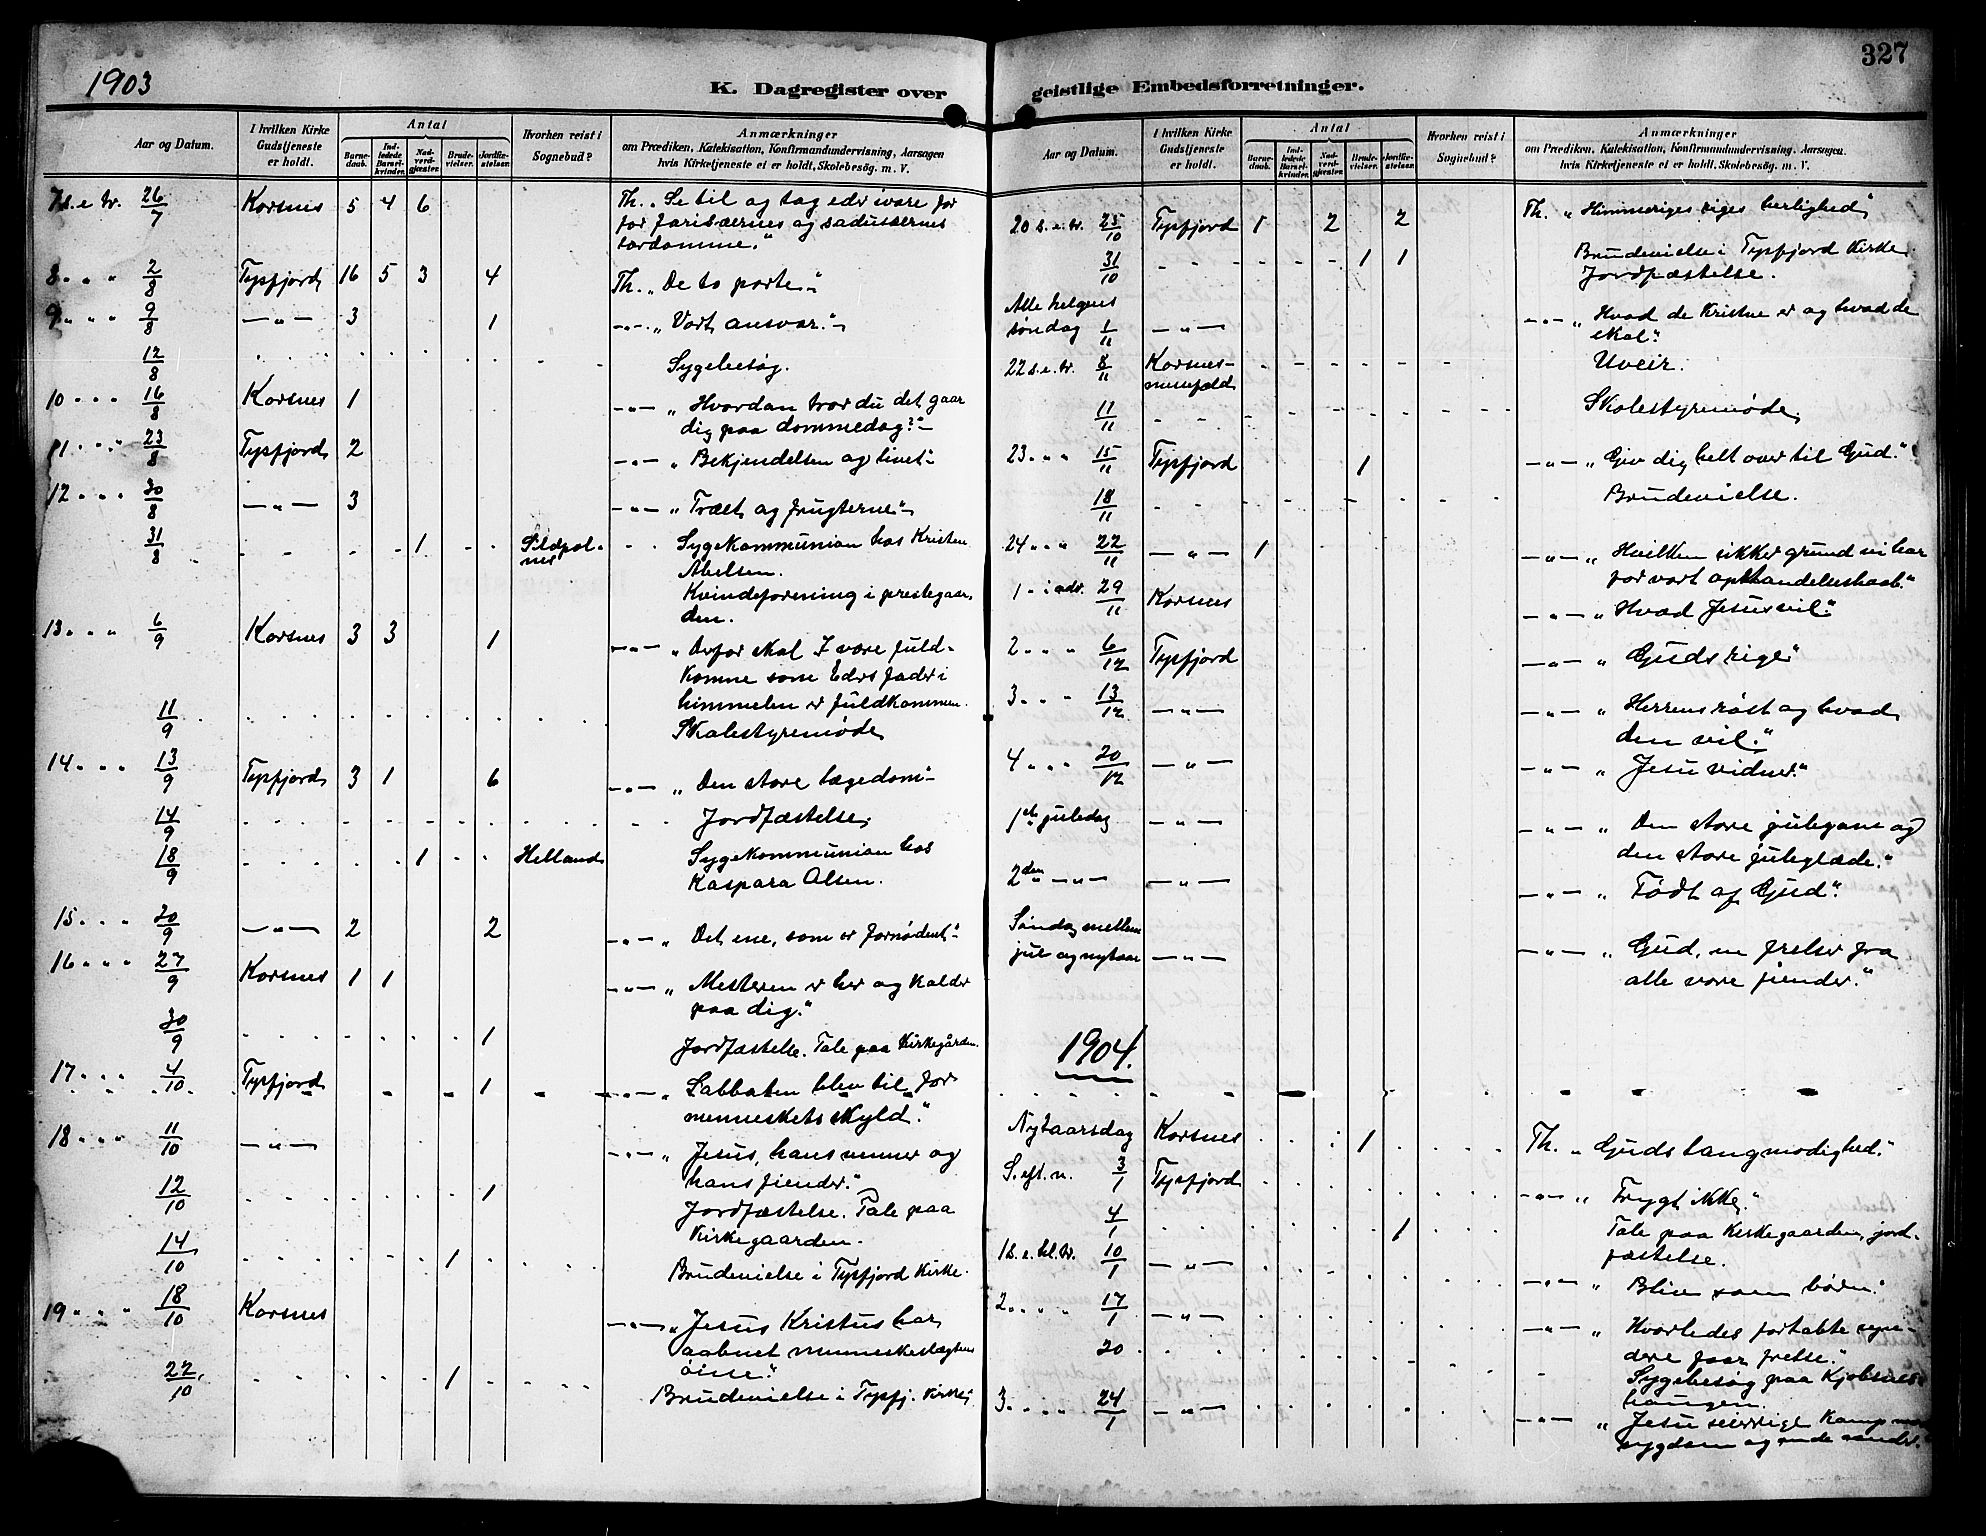 327
1903
K. Dagregister over
geistlige Embedsforretninger.
Aar og Datum.
I hvilken Kirke Gudstjeneste er holdt.
Antal
Barnedaab.
Indledede Barselkvinder.
Nadverdgjester.
Brudevielser.
Jordfæstelser.
Hvorhen reist i Sognebud?
Anmærkninger
om Prædiken, Katekisation, Konfirmandundervisning, Aarsagen
hvis Kirketjeneste ei er holdt, Skolebesøg. m. V.
7 s. e. tr. 26/7 Korsnes 5 4 6 Th. „Se til og tag eder ivare for
for farisæernes og sadusæernes
surdomme."
8 " " 2/8 Tysfjord 16 5 3 4 Th. „De to porte."
9 " " 9/8 —"— 3 1 —"— „Vort ansvar."
12/8 Sygebesøg.
10 " " 16/8 Korsnes 1 —"— „Hvordan tror du det gaar
dig paa dommedag?"
11 " " 23/8 Tysfjord 2 —"— „Bekjendelsen og livet"
12 " " 30/8 —"— 3 —"— „Træet og frugterne"
31/8 1 Sygekommunion hos Kristen
Abelsen.
Kvindeforening i prestegaar-
den.
13 " " 6/9 Korsnes 3 3 1 —"— „Derfor skal I være fuld-
komne som Eders fader i
himmelen er fuldkommen.
11/9 Skolestyremøde
14 " " 13/9 Tysfjord 3 1 6 —"— „Den store lægedom"
14/9 Jordfæstelse,
18/9 1 Helland Sygekommunion hos
Kaspara Olsen.
15 " " 20/9 —"— 2 2 —"— „Det ene, som er fornødent"
16 " " 27/9 Korsnes 1 1 —"— „Mesteren er her og kalder
paa dig."
30/9 1 Jordfæstelse. Tale paa Kirkegården.
17 " " 4/10 Tysfjord 1 —"— „Sabbaten blev til for
menneskets skyld."
18 " " 11/10 —"— —"— „Jesus, hans venner og
hans fiender."
12/10 1 Jordfæstelse. Tale paa
Kirkegaarden.
14/10 1 Brudevielse i Tysfjord Kirke.
19 " " 18/10 Korsnes —"— „Jesus Kristus har
aabnet menneskeslægtens
öine."
22/10 1 Brudevielse i Tysfj. Kirke
Aar og Datum.
I hvilken Kirke Gudstjeneste er holdt.
Antal
Barnedaab.
Indledede Barselkvinder.
Nadverdgjester.
Brudevielser.
Jordfæstelser.
Hvorhen reist i Sognebud?
Anmærkninger
om Prædiken, Katekisation, Konfirmandundervisning, Aarsagen
hvis Kirketjeneste ei er holdt, Skolebesøg. m. V.
20 s. e. tr. 25/10 Tysfjord 1 2 2 Th. „Himmeriges riges herlighed"
31/10 1 1 Brudevielse i Tysfjord Kirke.
Jordfæstelse.
Alle helgens
søndag 1/11 —"— —"— „Hvad de Kristne er og hvad de
skal."
22 s. e. tr. 8/11 Korsnes- Uveir.
11/11 Skolestyremøde,
23 " " 15/11 Tysfjord 1 —"— „Giv dig helt over til Gud."
18/11 Brudevielse.
24 " " 22/11 —"— 1 —"— „Hvilken sikker grund vi har
for vort opstandelseshaab."
1 " i adv. 29/11 Korsnes —"— „Hvad Jesus vil."
2 " " 6/12 Tysfjord —"— „Guds rige"
3 " " 13/12 —"— —"— „Herrens røst og hvad
den vil."
4 " " 20/12 —"— —"— „Jesu vidner."
1ste juledag —"— —"— „Den store julegave og
den store juleglæde."
2den —"— —"— —"— „Født af Gud".
Søndag mellem
jul og nytaar —"— —"— „Gud, en frelser fra
alle vore fiender."
1904.
Nytaarsdag Korsnes 1 Th. „Guds langmodighed."
S. eft. n. 3/1 Tysfjord —"— „Frygt ikke."
4/1 1 Tale paa Kirkegaarden, jord-
fæstelse.
1 s. e. hl. tr. 10/1 —"— —"— „Bliv som børn."
2 " " 17/1 —"— —"— „Hvorledes fortabte syn-
dere faar frelse."
20 Sygebesøg paa
3 " " 24/1 —"— —"— „Jesu seierrige Kamp mod
sygdom og onde aander."